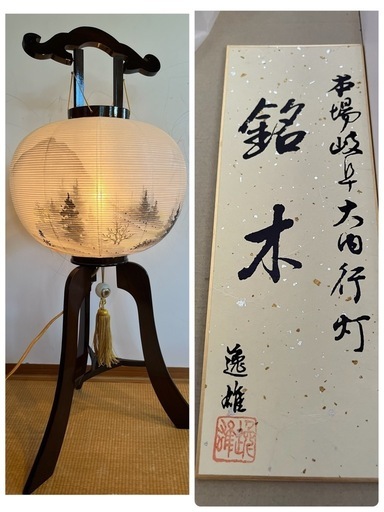 本場岐阜大内行灯
銘木
逸雄